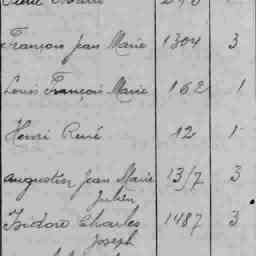 François Jean Marie 1304 3
Louis François Marie 162 1
Henri René 12 1
Augustin Jean Marie 1317 3
Julien
Isidore Charles 1487 3
Joseph